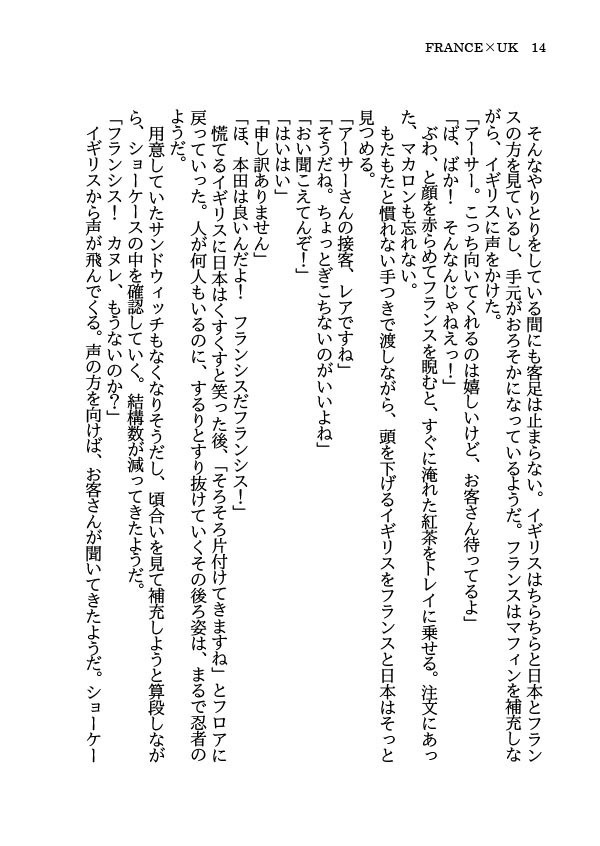 FRANCE×UK 14
そんなやりとりをしている間にも客足は止まらない。イギリスはちらちらと日本とフラン
スの方を見ているし、手元がおろそかになっているようだ。フランスはマフィンを補充しな
がら、イギリスに声をかけた。
「アーサー。こっち向いてくれるのは嬉しいけど、お客さん待ってるよ」
「ば、ばか！　そんなんじゃねえっ！」
ぶわ、と顔を赤らめてフランスを睨むと、すぐに淹れた紅茶をトレイに乗せる。注文にあっ
た、マカロンも忘れない。
もたもたと慣れない手つきで渡しながら、頭を下げるイギリスをフランスと日本はそっと
見つめる。
「アーサーさんの接客、レアですね」
「そうだね。ちょっとぎこちないのがいいよね」
「おい聞こえてんぞ！」
「はいはい」
「申し訳ありません」
「ほ、本田は良いんだよ！　フランシスだフランシス！」
慌てるイギリスに日本はくすくすと笑った後、「そろそろ片付けてきますね」とフロアに
戻っていった。人が何人もいるのに、するりとすり抜けていくその後ろ姿は、まるで忍者の
ようだ。
用意していたサンドウィッチもなくなりそうだし、頃合いを見て補充しようと算段しなが
ら、ショーケースの中を確認していく。結構数が減ってきたようだ。
「フランシス！　カヌレ、もうないのか？」
イギリスから声が飛んでくる。声の方を向けば、お客さんが聞いてきたようだ。ショーケー